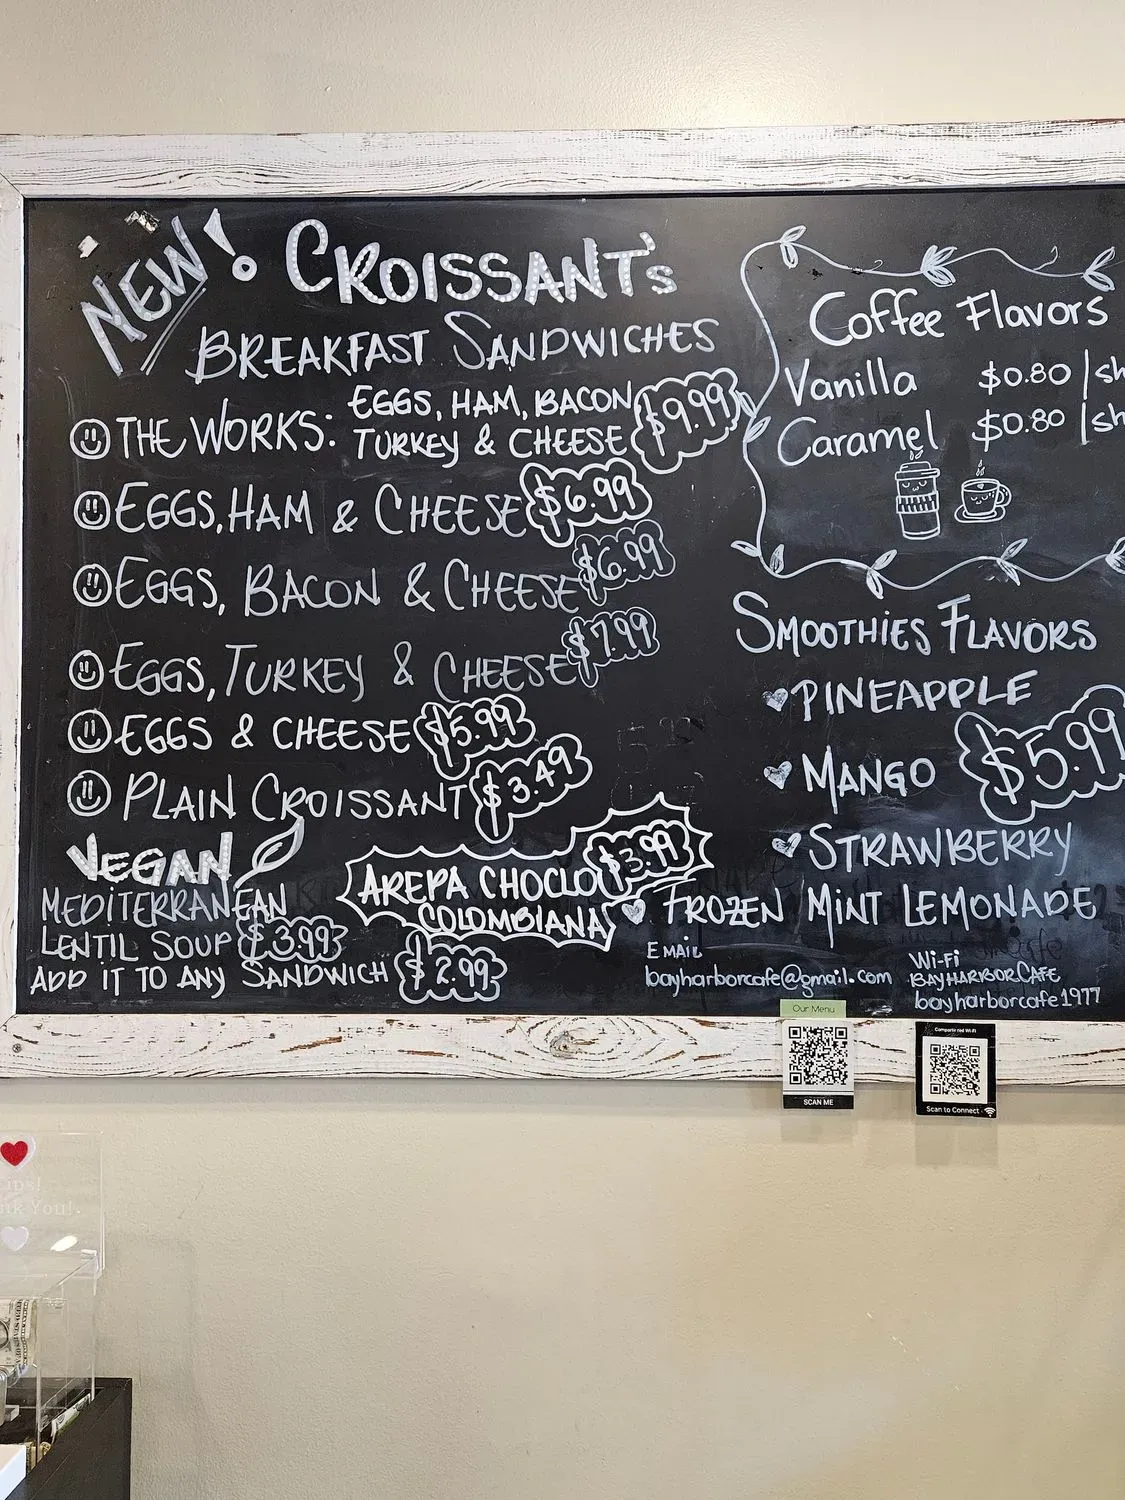 NEW!
CROISSANT's
BREAKFAST SANDWICHES
THE WORKS: EGGS, HAM, BACON
TURKEY & CHEESE $9.99
EGGS, HAM & CHEESE $6.99
EGGS, BACON & CHEESE $6.99
EGGS, TURKEY & CHEESE $7.99
EGGS & CHEESE $5.99
PLAIN CROISSANT $3.49
VEGAN
MEDITERRANEAN
LENTIL SOUP $3.99
ADD IT TO ANY SANDWICH $2.99
AREPA CHOCLO $3.99
COLOMBIANA
Coffee Flavors
Vanilla $0.80 | sh
Caramel $0.80 | sh
SMOOTHiES FLAVORS
PINEAPPLE
MANGO $5.99
STRAWBERRY
FROZEN MINT LEMONADE
EMAIL
bayharborcafe@gmail.com
Wi-Fi
BAYHARBORCAFE
bayharborcafe1977
Our Menu
SCAN ME
Scan to Connect
ips!
nk You!